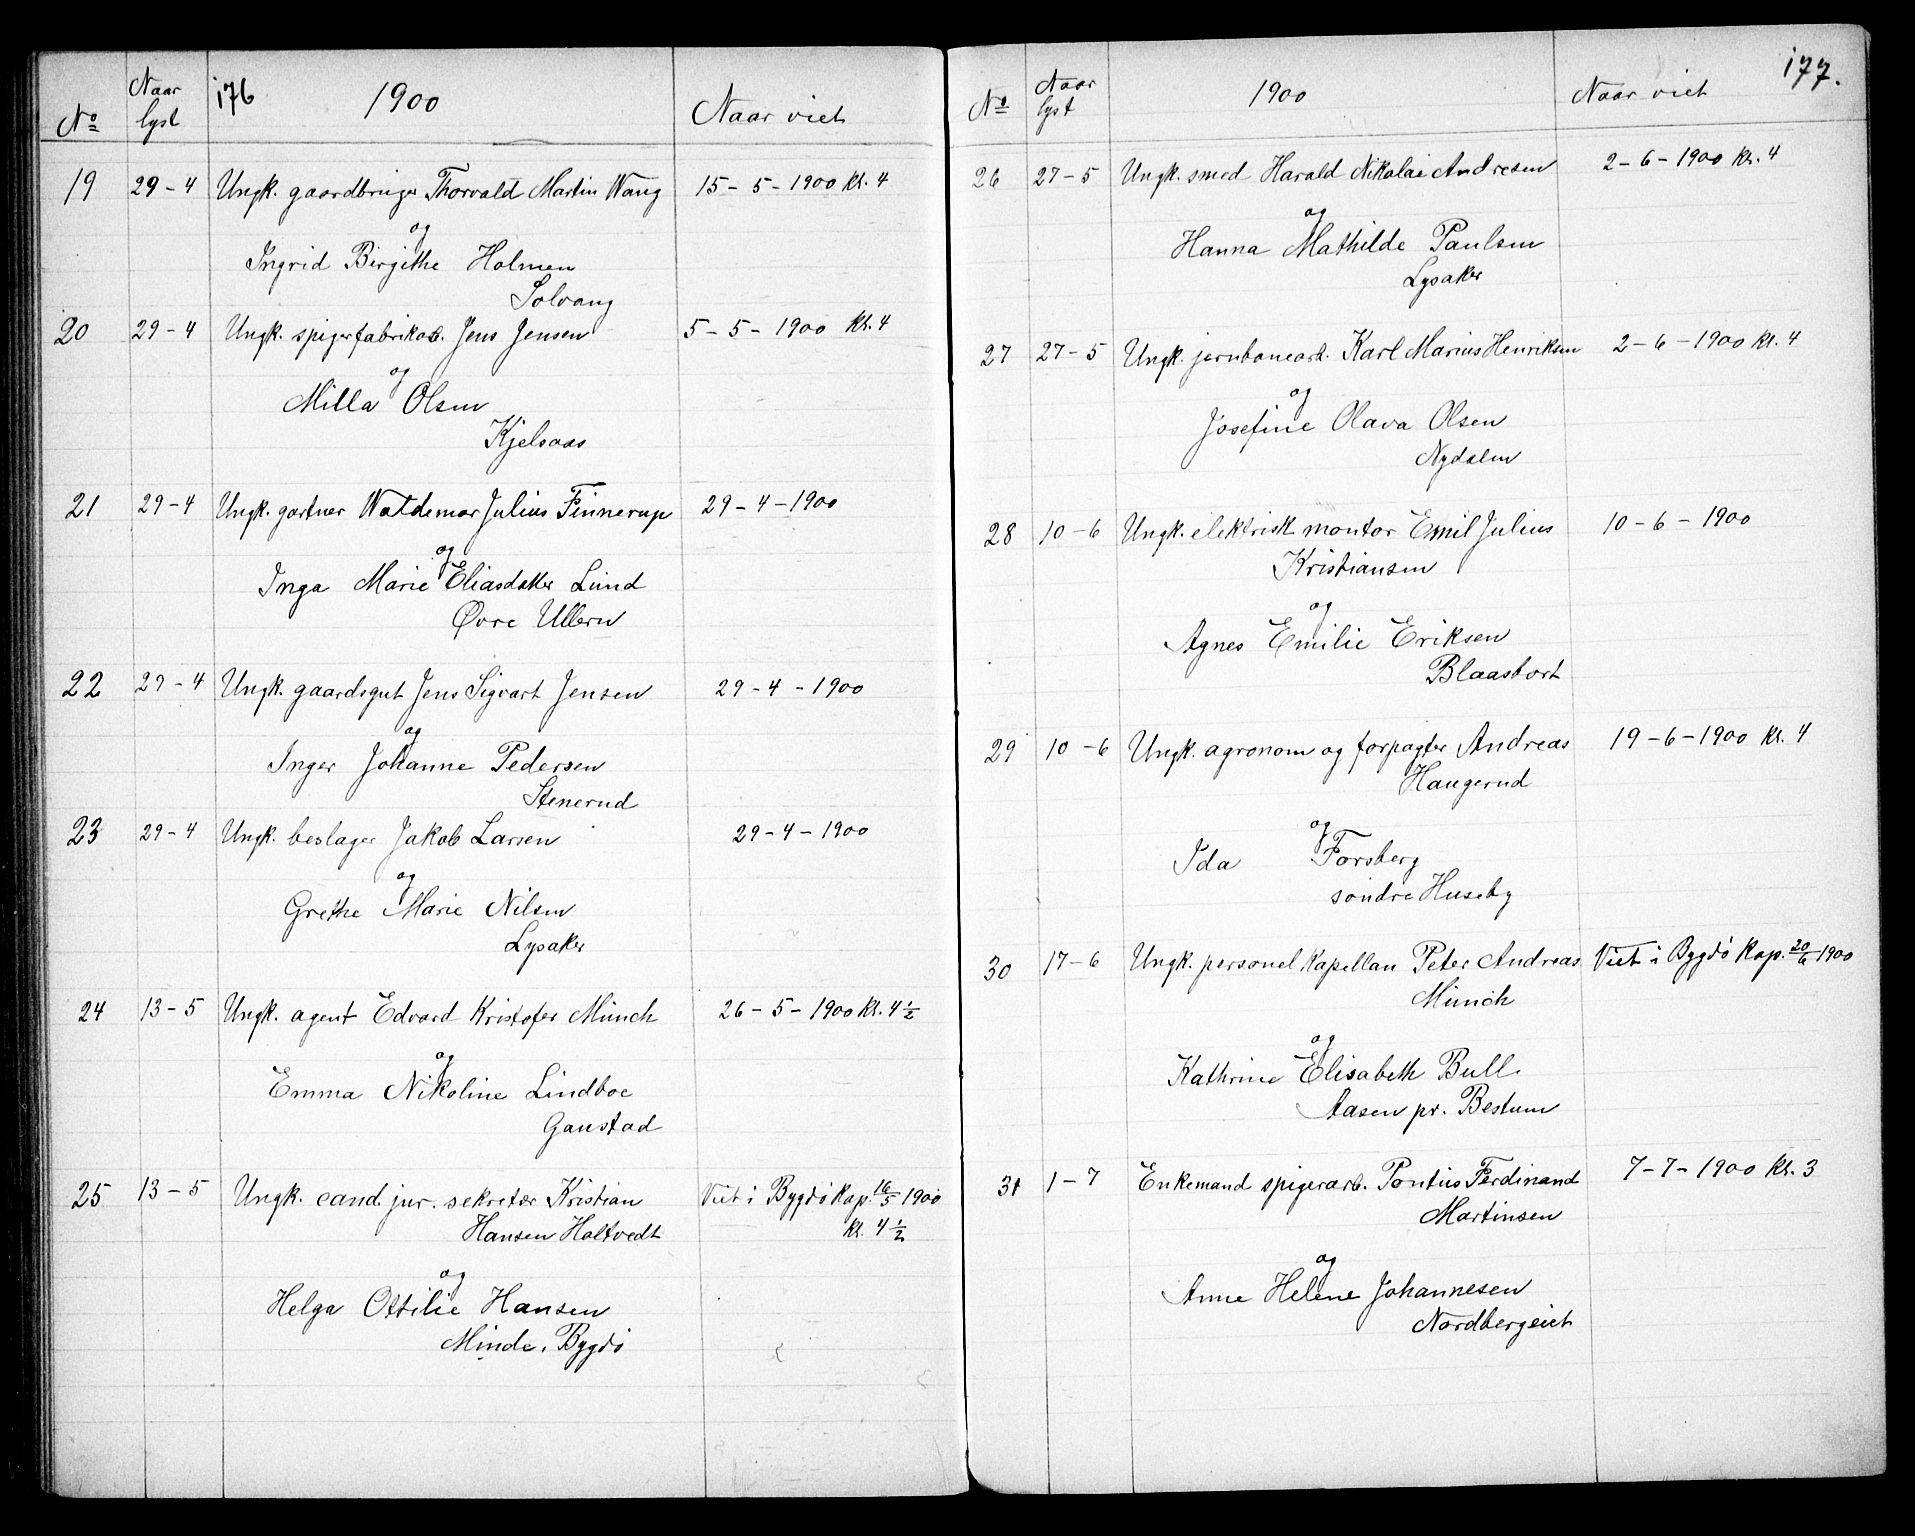 No Naar lyst 176 1900 Naar viet
19 29-4 Ungk. gaardbruger Thorvald Martin Wang 15-5-1900 Kl. 4
og
Ingrid Birgithe Holmen
Solvang
20 29-4 Ungk. spigerfabrikarb. Jens Jensen 5-5-1900 Kl. 4
og
Milla Olsen
Kjelsaas
21 29-4 Ungk. gartner Waldemar Julius Finnerup 29-4-1900
og
Inga Marie Eliasdatter Lund
Øvre Ullern
22 29-4 Ungk. gaardsgut Jens Sigvart Jensen 29-4-1900
og
Inger Johanne Pedersen
Stenerud
23 29-4 Ungk. beslager Jakob Larsen 29-4-1900
og
Grethe Marie Nilsen
Lysaker
24 13-5 Ungk. agent Edvard Kristofer Münch 26-5-1900 Kl. 4 1/2
og
Emma Nikoline Lindboe
Gaustad
25 13-5 Ungk. cand. jur. sekretær Kristian Viet i Bygdö Kap. 16/5 1900
Hansen Holtvedt Kl. 4 1/2
og
Helga Ottilie Hansen
Minde, Bygdö
No Naar lyst 1900 Naar viet 177.
26 27-5 Ungk. smed Harald Nikolai Andresen 2-6-1900 Kl. 4
og
Hanna Mathilde Paulsen
Lysaker
27 27-5 Ungk. jernbanearb. Karl Marius Henriksen 2-6-1900 Kl. 4
og
Josefine Olava Olsen
Nydalen
28 10-6 Ungk. elektrisk montör Emil Julius 10-6-1900
Kristiansen
og
Agnes Emilie Eriksen
Blaasbort
29 10-6 Ungk. agronom og forpagter Andreas 19-6-1900 Kl. 4
Haugerud
og
Ida Forsberg
söndre Huseby
30 17-6 Ungk. personel Kapellan Peter Andreas Viet i Bygdö Kap. 20/6 1900
Münch
og
Kathrine Elisabeth Bull
Aasen pr. Bestum
31 1-7 Enkemand spigerarb. Pontus Ferdinand 7-7-1900 Kl. 3
Martinsen
og
Anne Helene Johannesen
Nordbergeiet